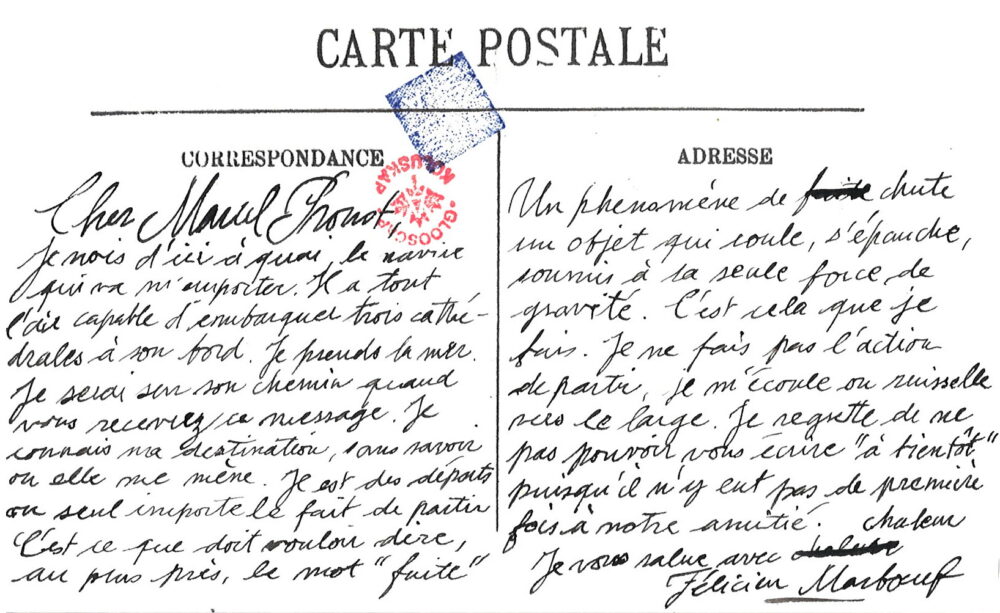 CARTE POSTALE
CORRESPONDANCE
Cher Marcel Proust,
Je vois d'ici à quai, le navire
qui va m'emporter. Il a tout
l'air capable d'embarquer trois cathé-
drales à son bord. Je prends la mer.
Je serai sur son chemin quand
vous recevrez ce message. Je
connais ma destination, sans savoir
où elle me mène. Je est des départs
où seul importe le fait de partir
C'est ce que doit vouloir dire,
au plus près, le mot "fuite"
GLOOSCAP KOLUSKAP
ADRESSE
Un phénomène de fuite chute
un objet qui coule, s'épanche,
soumis à sa seule force de
gravité. C'est cela que je
fais. Je ne fais pas l'action
de partir, je m'écoule ou ruisselle
vers le large. Je regrette de ne
pas pouvoir vous écrire "à bientôt"
puisqu'il n'y eut pas de première
fois à notre amitié.
Je vous salue avec chaleur
Félicien Marboeuf